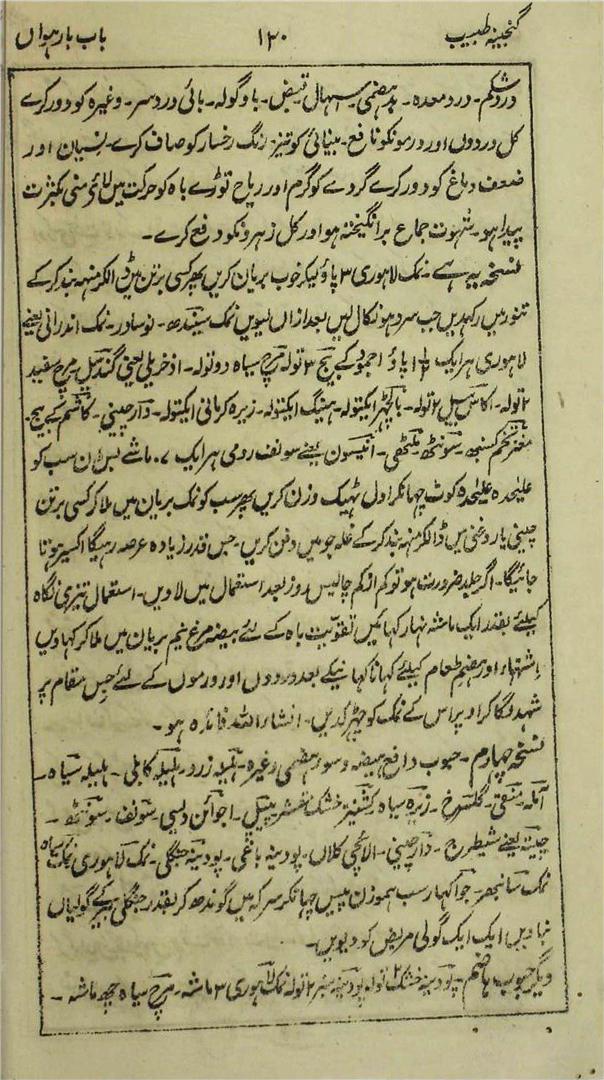 گنجینہ طبیب ۱۳۰ باب بارہواں
درد شکم۔ درد معدہ۔ بدہضمی۔ اسہال قبض۔ باؤ گولہ۔ بائی درد سر۔ وغیرہ کو دور کرے
کل دردوں اور ورمونکو نافع۔ بینائی کو تیز۔ رنگ رخسار کو صاف کرے۔ نسیان اور
ضعف دماغ کو دور کرے گردے کو گرم اور ریاح توڑے باہ کو حرکت میں لائے منی بکثرت
پیدا ہو۔ شہوت جماع برانگیختہ ہو اور کل زہرونکو دفع کرے۔
نسخہ یہ ہے۔ نمک لاہوری ۳ پاؤ لیکر خوب بریان کریں پھر کسی برتن میں ڈالکر منہ بند کر کے
تنور میں رکہدیں جب سرد ہو نکال لیں بعد ازاں لیویں نمک سیندھ۔ نوسادر۔ نمک اندرانی یعنے
لاہوری ہر ایک پاؤ اجمود کے بیج ۳ تولہ مرچ سیاہ دو تولہ۔ اذخر یعنی گندبیل مرچ سفید
۲ تولہ۔ اکاس بیل ۲ تولہ۔ بالچھڑ ایکتولہ۔ ہینگ ایکتولہ۔ زیرہ کرمانی ایکتولہ۔ دارچینی۔ کاشم کے بیج
مغز تخم سونٹھ۔ انیسون یعنے سونف رومی ہر ایک ۷ ماشے پس ان سب کو
علیحدہ علیحدہ کوٹ چہانکر اول ٹھیک وزن کریں پھر سب کو نمک بریان میں ملا کر کسی برتن
چینی یا روغنی میں ڈالکر منہ بند کر کے غلہ جو میں دفن کریں۔ جس قدر زیادہ عرصہ رہیگا اکسیر ہوتا
جائیگا۔ اگر جلد ضرورت ہو تو کم از کم چالیس روز بعد استعمال میں لاویں۔ استعمال تیزی نگاہ
کیلئے بقدر ایک ماشہ نہار کہائیں تقویت باہ کے لئے بیضہ مرغ نیم بریان میں ملا کر کہاویں
اشتہار اور ہضم طعام کیلئے کہانا کہانیکے بعد دردوں اور ورموں کے لئے جس مقام پر
شہد لگا کر اوپر اس کے نمک کو چھڑکدیں۔ انشاء اللہ فائدہ ہو۔
نسخہ چہارم۔ حبوب دافع ہیضہ و سوء ہضمی وغیرہ۔ ہلیلہ زرد۔ ہلیلہ کابلی۔ ہلیلہ سیاہ۔
آملہ منقی۔ گلسرخ۔ زیرہ سیاہ کشنیز خشک مقشر پیپل۔ اجوائن دیسی۔ سونف۔ سونٹھ۔
چیتہ یعنے شیطرج۔ دارچینی۔ الائچی کلاں۔ پودینہ باغی۔ پودینہ جنگلی۔ نمک لاہوری نمک سیاہ
نمک سانبھر۔ جواکہار سب ہموزن پیس چہانکر سرکہ میں گوندھ کر بقدر جنگلی بیر کے گولیاں
بناویں ایک ایک گولی مریض کو دیویں۔
دیگر حبوب ہاضم۔ پودینہ خشک ۲ تولہ پودینہ سبز ۲ تولہ نمک لاہوری ۳ ماشہ۔ مرچ سیاہ چھ ماشہ۔